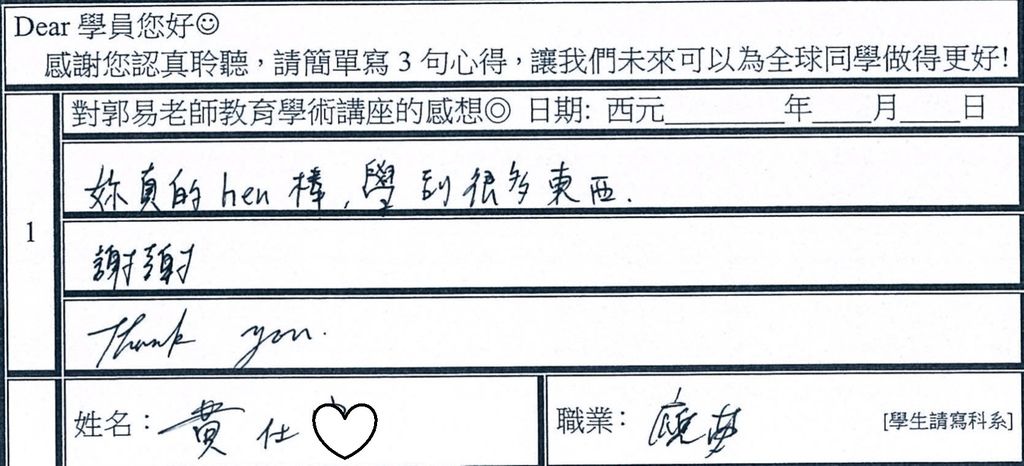 Dear 學員您好☺
感謝您認真聆聽，請簡單寫 3 句心得，讓我們未來可以為全球同學做得更好!
對郭易老師教育學術講座的感想◎ 日期: 西元________年____月____日
1
妳真的 hen 棒，學到很多東西.
謝謝
Thank you.
姓名：黃仕
職業： [學生請寫科系]